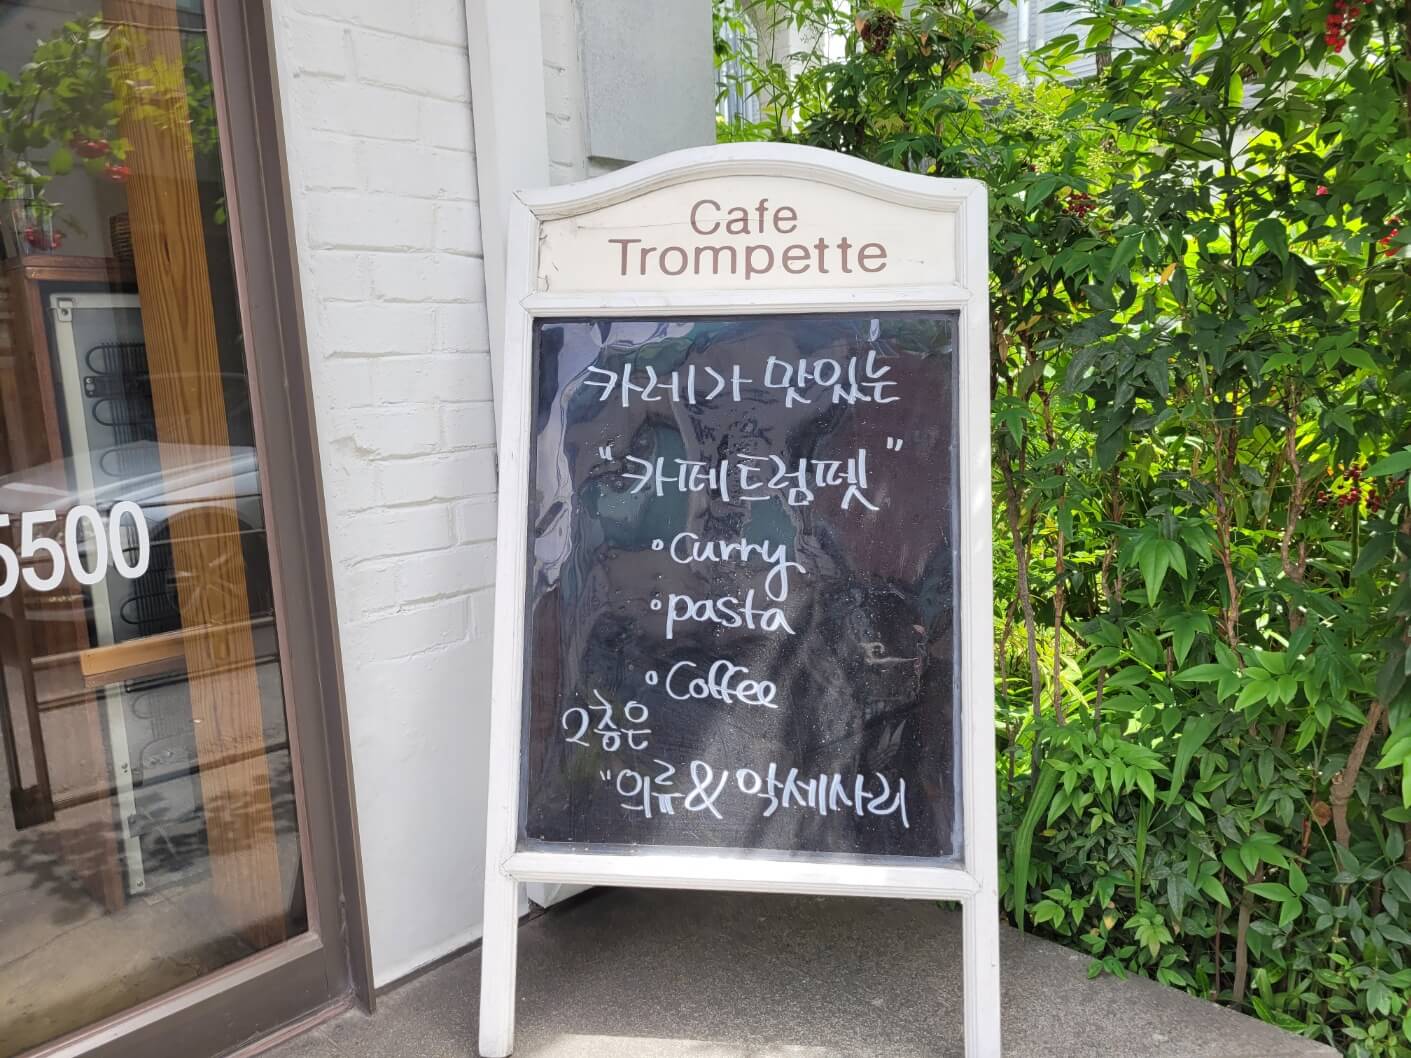 Cafe
Trompette
카레가 맛있는
"카페드럼펫"
◦curry
◦pasta
◦Coffee
2층은
"의류&악세사리
5500